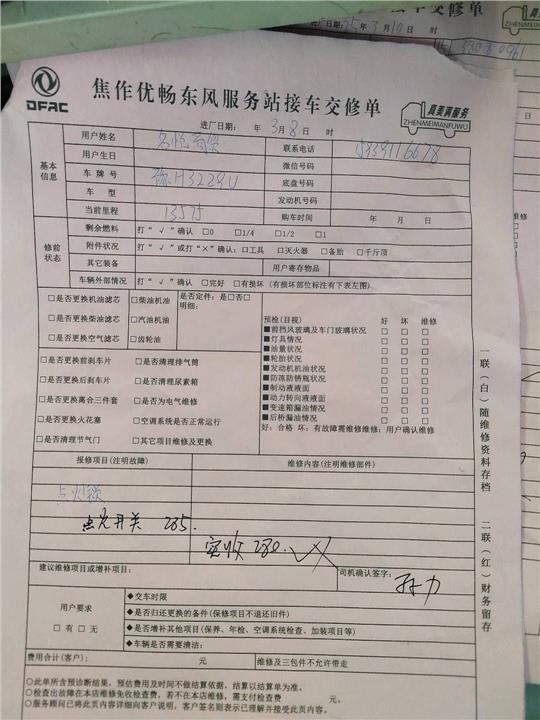 DFAC
焦作优畅东风服务站接车交修单
真美满服务
ZHENMEIMANFUWU
进厂日期: 年 3月 8日 时
基本信息
用户姓名
联系电话
用户生日
微信号码
车牌号 豫H3229U
底盘号码
车型
发动机号码
当前里程 13575
购车时间 年 月 日
修前状态
剩余燃料 打“√”确认 □0 □1/4 □1/2 □1
附件状况 打“√”或打“×”确认:□工具 □灭火器 □备胎 □千斤顶
其它装备 用户寄存物品
车辆外部情况 打“√”确认 □完好 □有损坏(有损坏部位标注有下表左图)
□是否更换机油滤芯 □柴油机油
□是否更换柴油滤芯 □汽油机油
□是否更换空气滤芯 □齿轮油
是否定件:是□否□
明细:
□是否更换前刹车片 □是否清理排气筒
□是否更换后刹车片 □是否清理尿素箱
□是否更换离合三件套 □是否为电气维修
□是否更换火花塞 □空调系统是否正常运行
□是否清理节气门 □其它项目维修及更换
预检(目视) 好 坏 维修
■前挡风玻璃及车门玻璃状况 □ □ □
■灯具情况 □ □ □
■油量状况 □ □ □
■轮胎状况 □ □ □
■发动机机油状况 □ □ □
■防冻防锈瓶状况 □ □ □
■制动液液面 □ □ □
■动力转向液液面 □ □ □
■变速箱漏油情况 □ □ □
■后桥漏油情况 □ □ □
好:合格 坏:有故障需维修维修:用户确认维修
报修项目(注明故障) 维修内容(注明维修部件)
点火锁
点火开关 285.
实收 280.
建议维修项目或增补项目:
司机确认签字:
用户要求
□有 □无
◆交车时限
◆是否归还更换的备件(保修项目不退还旧件)
◆是否增补其他项目(保养、年检、空调系统检查、加装项目等)
◆车辆是否需要清洁:
费用合计(客户): 元 维修及三包件不允许带走
○此单所含预诊断结果,预估费用及时间不做结算依据,结算以结算单为准。
○检查出故障在本店维修免收检查费,若不在本店维修,需支付检查费 元。
○服务顾问已将此页内容详细向客户说明,客户签名则表示已理解并接受此页内容。
一联(白)随维修资料存档
二联(红)财务留存